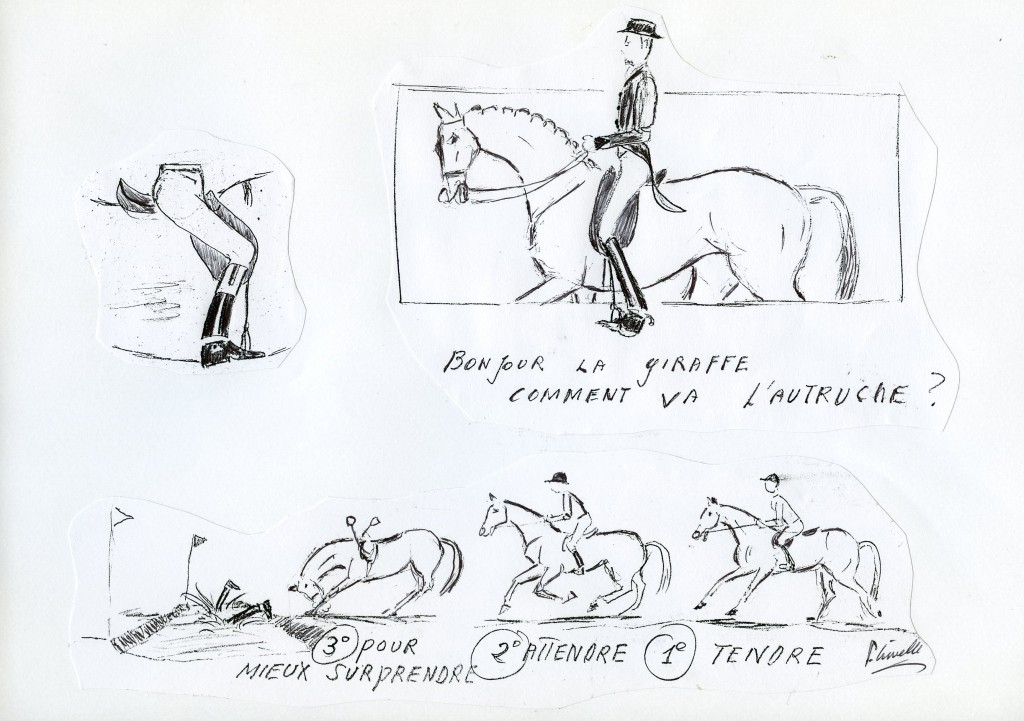 BONJOUR LA GIRAFFE
COMMENT VA L'AUTRUCHE ?
3° POUR
MIEUX SURPRENDRE
2° ATTENDRE
1° TENDRE